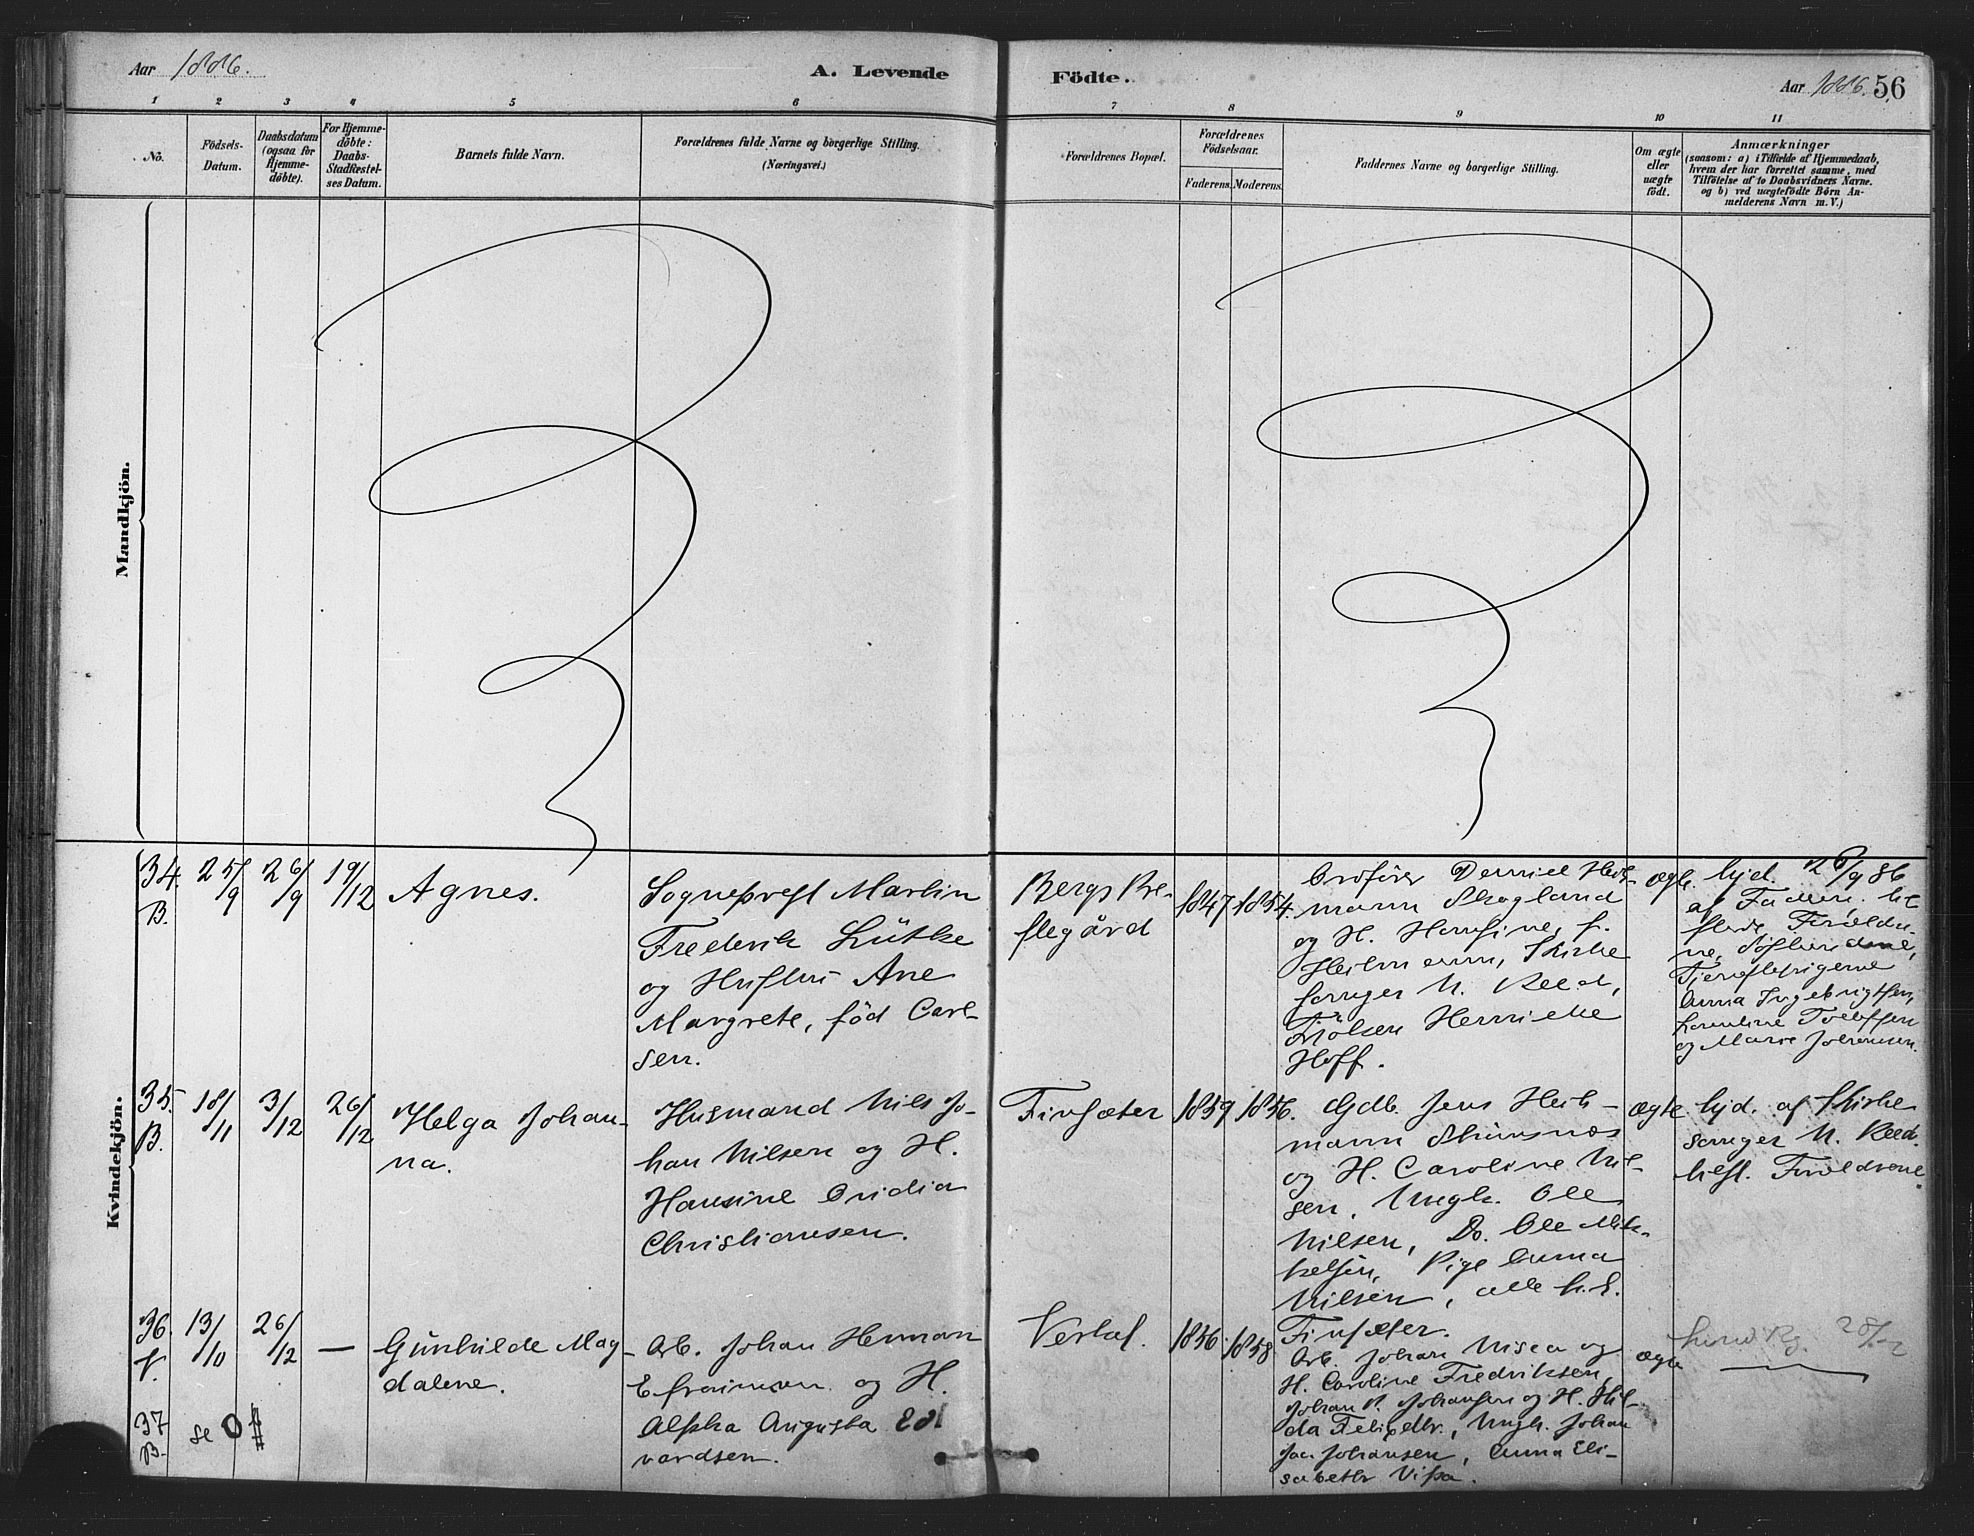 Aar 1886.
A. Levende
Födte.
Aar 1886. 56
1 2 3 4 5 6 7 8 9 10 11
No.
Födsels-
Datum.
Daabsdatum
(ogsaa for
Hjemme-
döbte).
For Hjemme-
döbte:
Daabs-
Stadfæstel-
ses Datum.
Barnets fulde Navn.
Forældrenes fulde Navne og borgerlige Stilling.
(Næringsvei.)
Forældrenes Bopæl.
Forældrenes
Födselsaar.
Faderens. Moderens.
Faddernes Navne og borgerlige Stilling.
Om ægte
eller
uægte
födt.
Anmærkninger
(saasom: a) i Tilfælde af Hjemmedaab,
hvem der har forrettet samme, med
Tilföielse af to Daabsvidners Navne.
og b) ved uægtefödte Börn An-
melderens Navn m. V.)
Mandkjön.
Kvindekjön.
34.
B.
25/9
26/9
19/12
Agnes.
Sogneprest Martin
Frederik Lütke
og Hustru Ane
Margrete, föd Carl-
sen.
Bergs Præ-
stegård
1847 1854.
Daniel Heit-
mann Skogland
og H. Hansine, f.
Heitmann, Kirke
sanger N. Reed,
Fröken Henrikke
Hoff.
ægte.
hjd. 26/9 86
af Faderen.
Foræld
Tjenestepigerne
Anna Ingebrigtsen,
og Marie Johansen.
35.
B.
18/11
3/12
26/12
Helga Johan-
na.
Husmand Nils Jo-
han Nilsen og H.
Hansine Oridia
Christiansen.
Finsæter
1859 1856.
Gdb. Jens Heit-
mann
og H. Caroline Nil-
sen, Ungk. Ole
Nilsen, Do. Ole Mik-
kelsen, Pige Anna
Nilsen, alle
Finsæter.
ægte
hjd. af Kirke
sanger N. Reed.
best. Forældrene.
36.
V.
13/10
26/12
—
Gunhilde Mag-
dalene.
Arb. Johan Herman
Efraimsen og H.
Alpha Augusta Ed
vardsen.
1856. 1858
Arb. Johan og
H. Caroline Fredriksen,
Johan P. Johansen og H. Hil-
da Ungk. Johan
Jac. Johansen, Anna Eli-
sabeth
ægte
37
B.
se